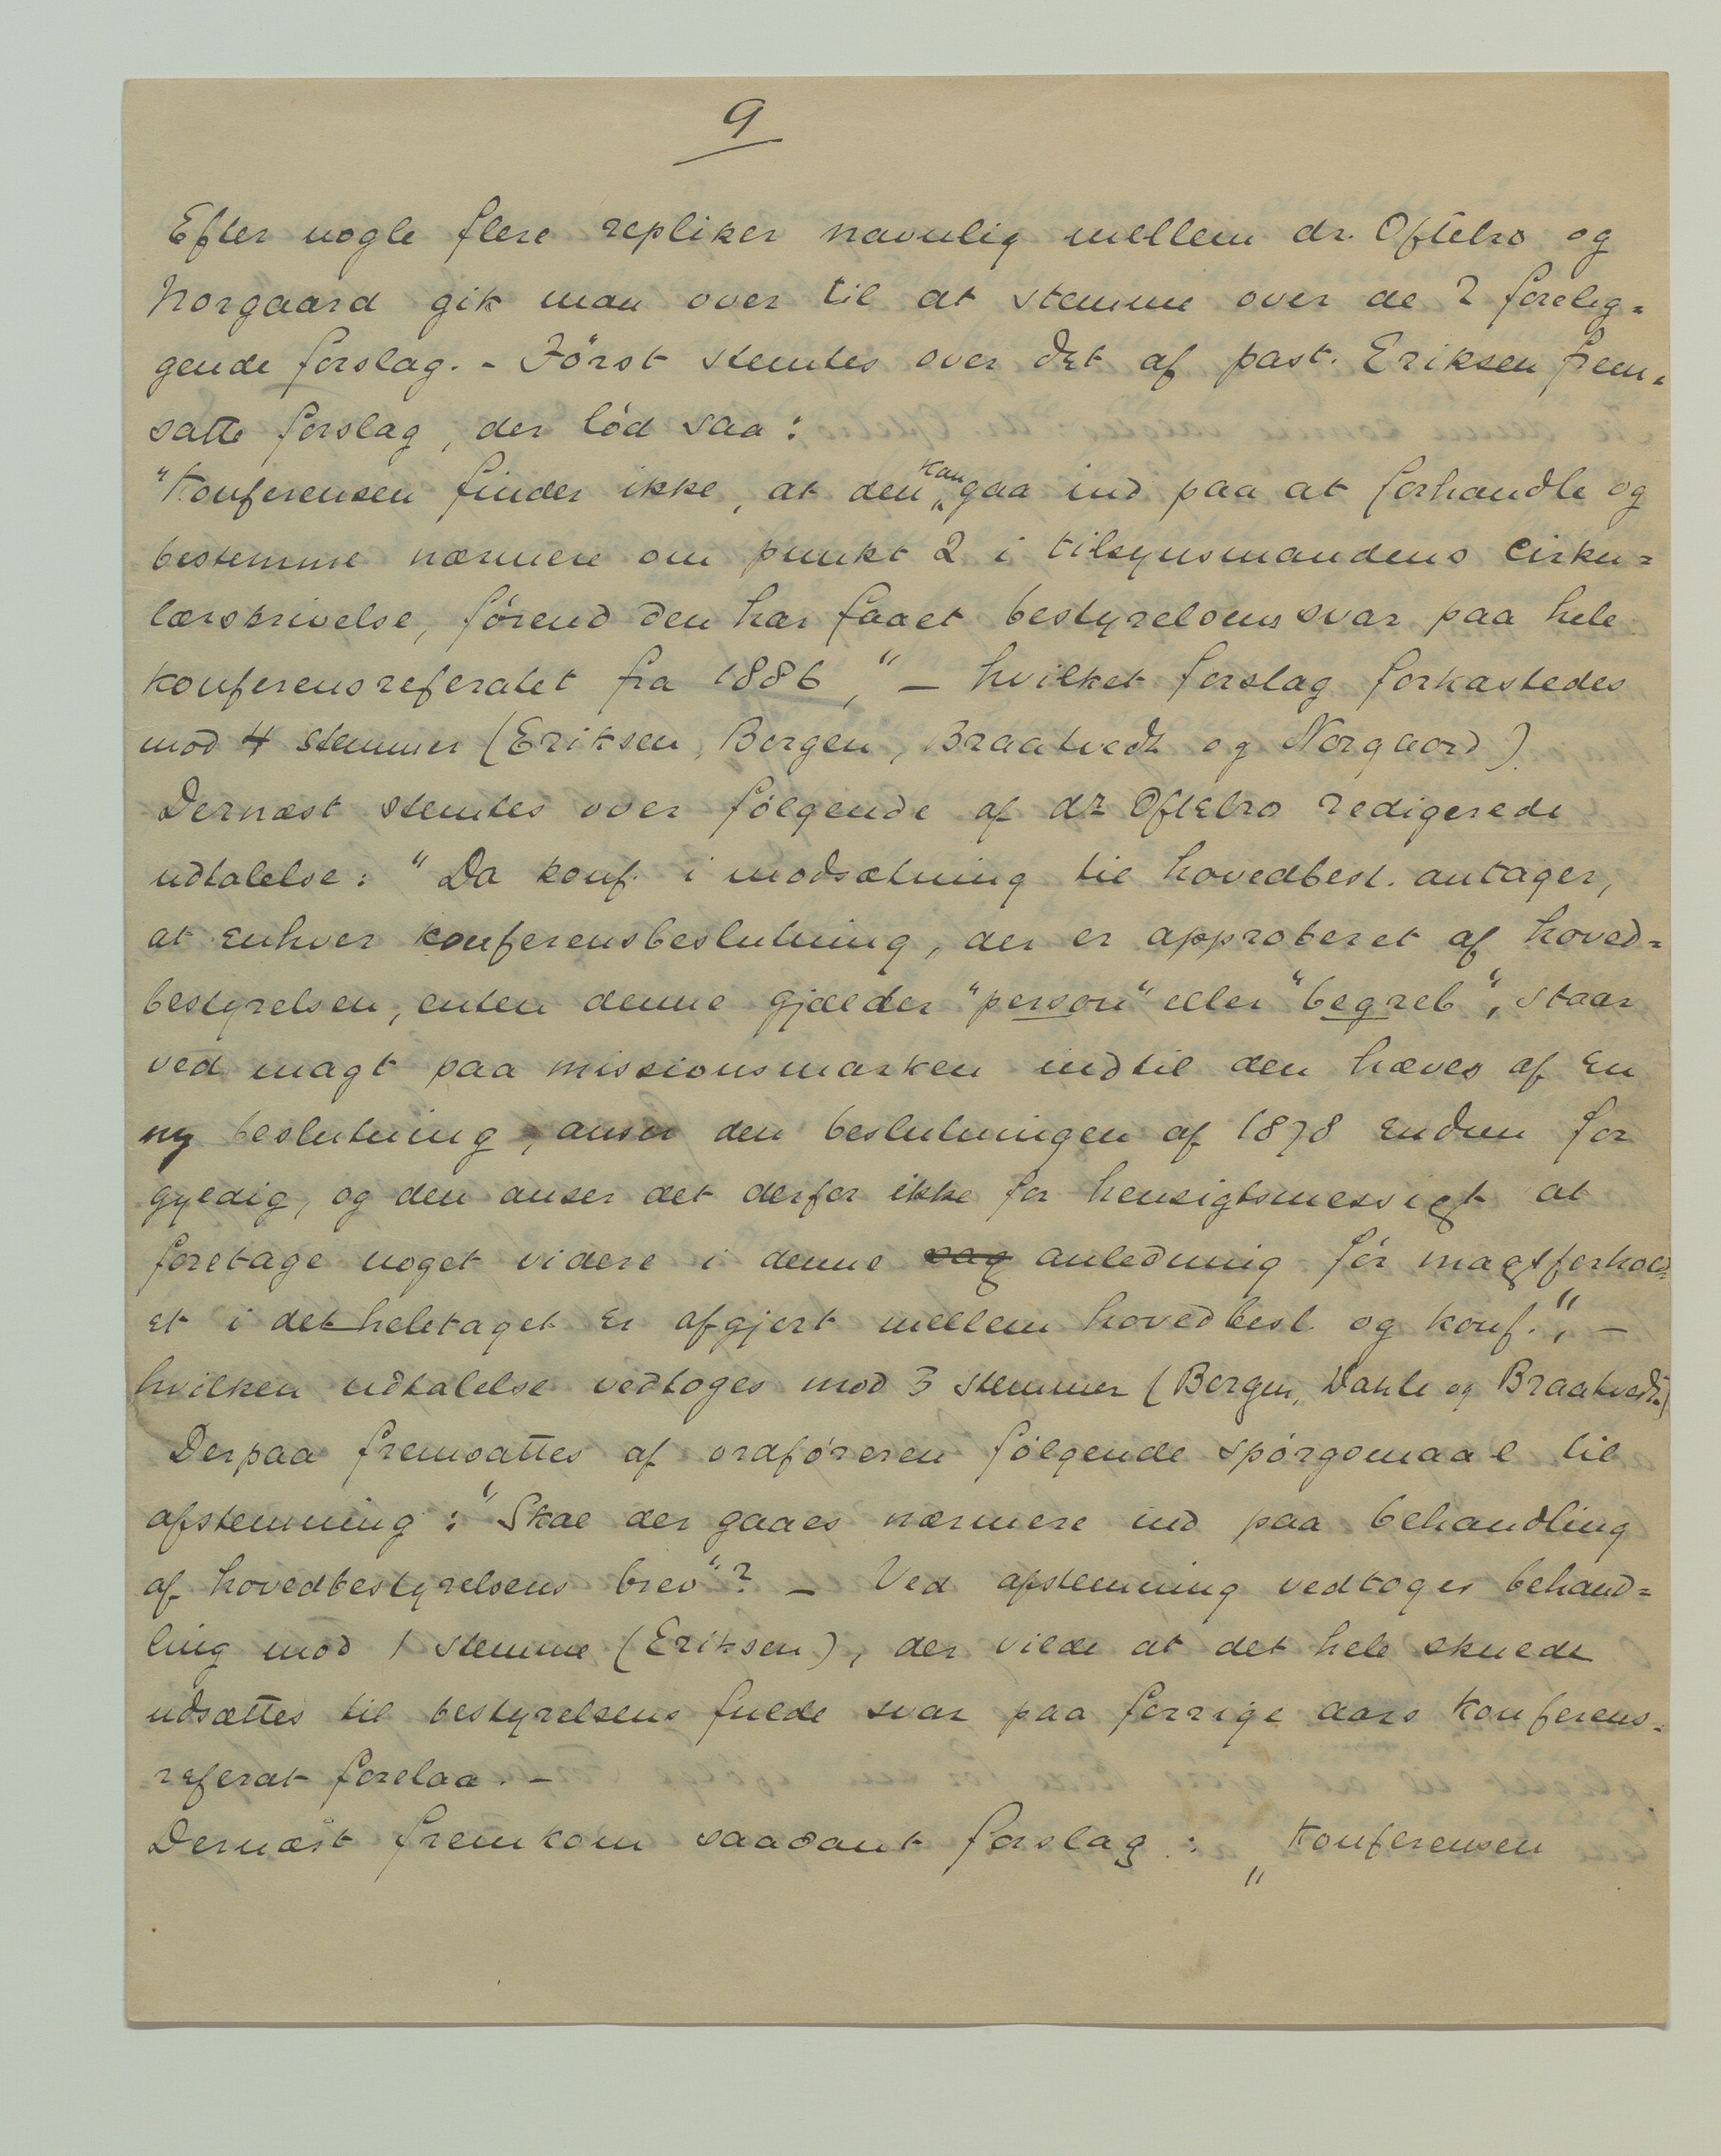 9
Efter nogle flere repliker navnlig mellem dr. Oftebro og
Norgaard gik man over til at stemme over de 2 forelig=
gende forslag. - Først stemtes over det af past. Eriksen frem=
satte forslag, der lød saa:
"Konferensen finder ikke, at den kan gaa ind paa at forhandle og
bestemme nærmere om punkt 2 i tilsynsmandens cirku=
lærskrivelse, førend den har faaet bestyrelsens svar paa hele
konferensreferatet fra 1886," – hvilket forslag forkastedes
mod 4 stemmer (Eriksen, Borgen, Braatvedt og Norgaard).
Dernæst stemtes over følgende af dr Oftebro redigerede
udtalelse: "Da konf. i modsætning til hovedbest. antager,
at enhver konferensbeslutning, der er approberet af hoved=
bestyrelsen, enten denne gjælder "person" eller "begreb", staar
ved magt paa missionsmarken indtil den hæves af en
ny beslutning, anser den beslutningen af 1878 endnu for
gyldig, og den anser det derfor ikke for hensigtsmessigt at
foretage noget videre i denne sag anledning før magtforhold=
et i det heletaget er afgjort mellem hovedbest. og konf.", –
hvilken udtalelse vedtoges mod 3 stemmer (Borgen, Dahle og Braatvedt.)
Derpaa fremsattes af ordføreren følgende spørgsmaal til
afstemning: "Skal der gaaes nærmere ind paa behandling
af hovedbestyrelsens brev"? – Ved afstemning vedtoges behand=
ling mod 1 stemme (Eriksen), der vilde at det hele skulde
udsættes til bestyrelsens fulde svar paa forrige aars konferens=
referat forelaa. –
Dernæst fremkom saadant forslag: „Konferensen